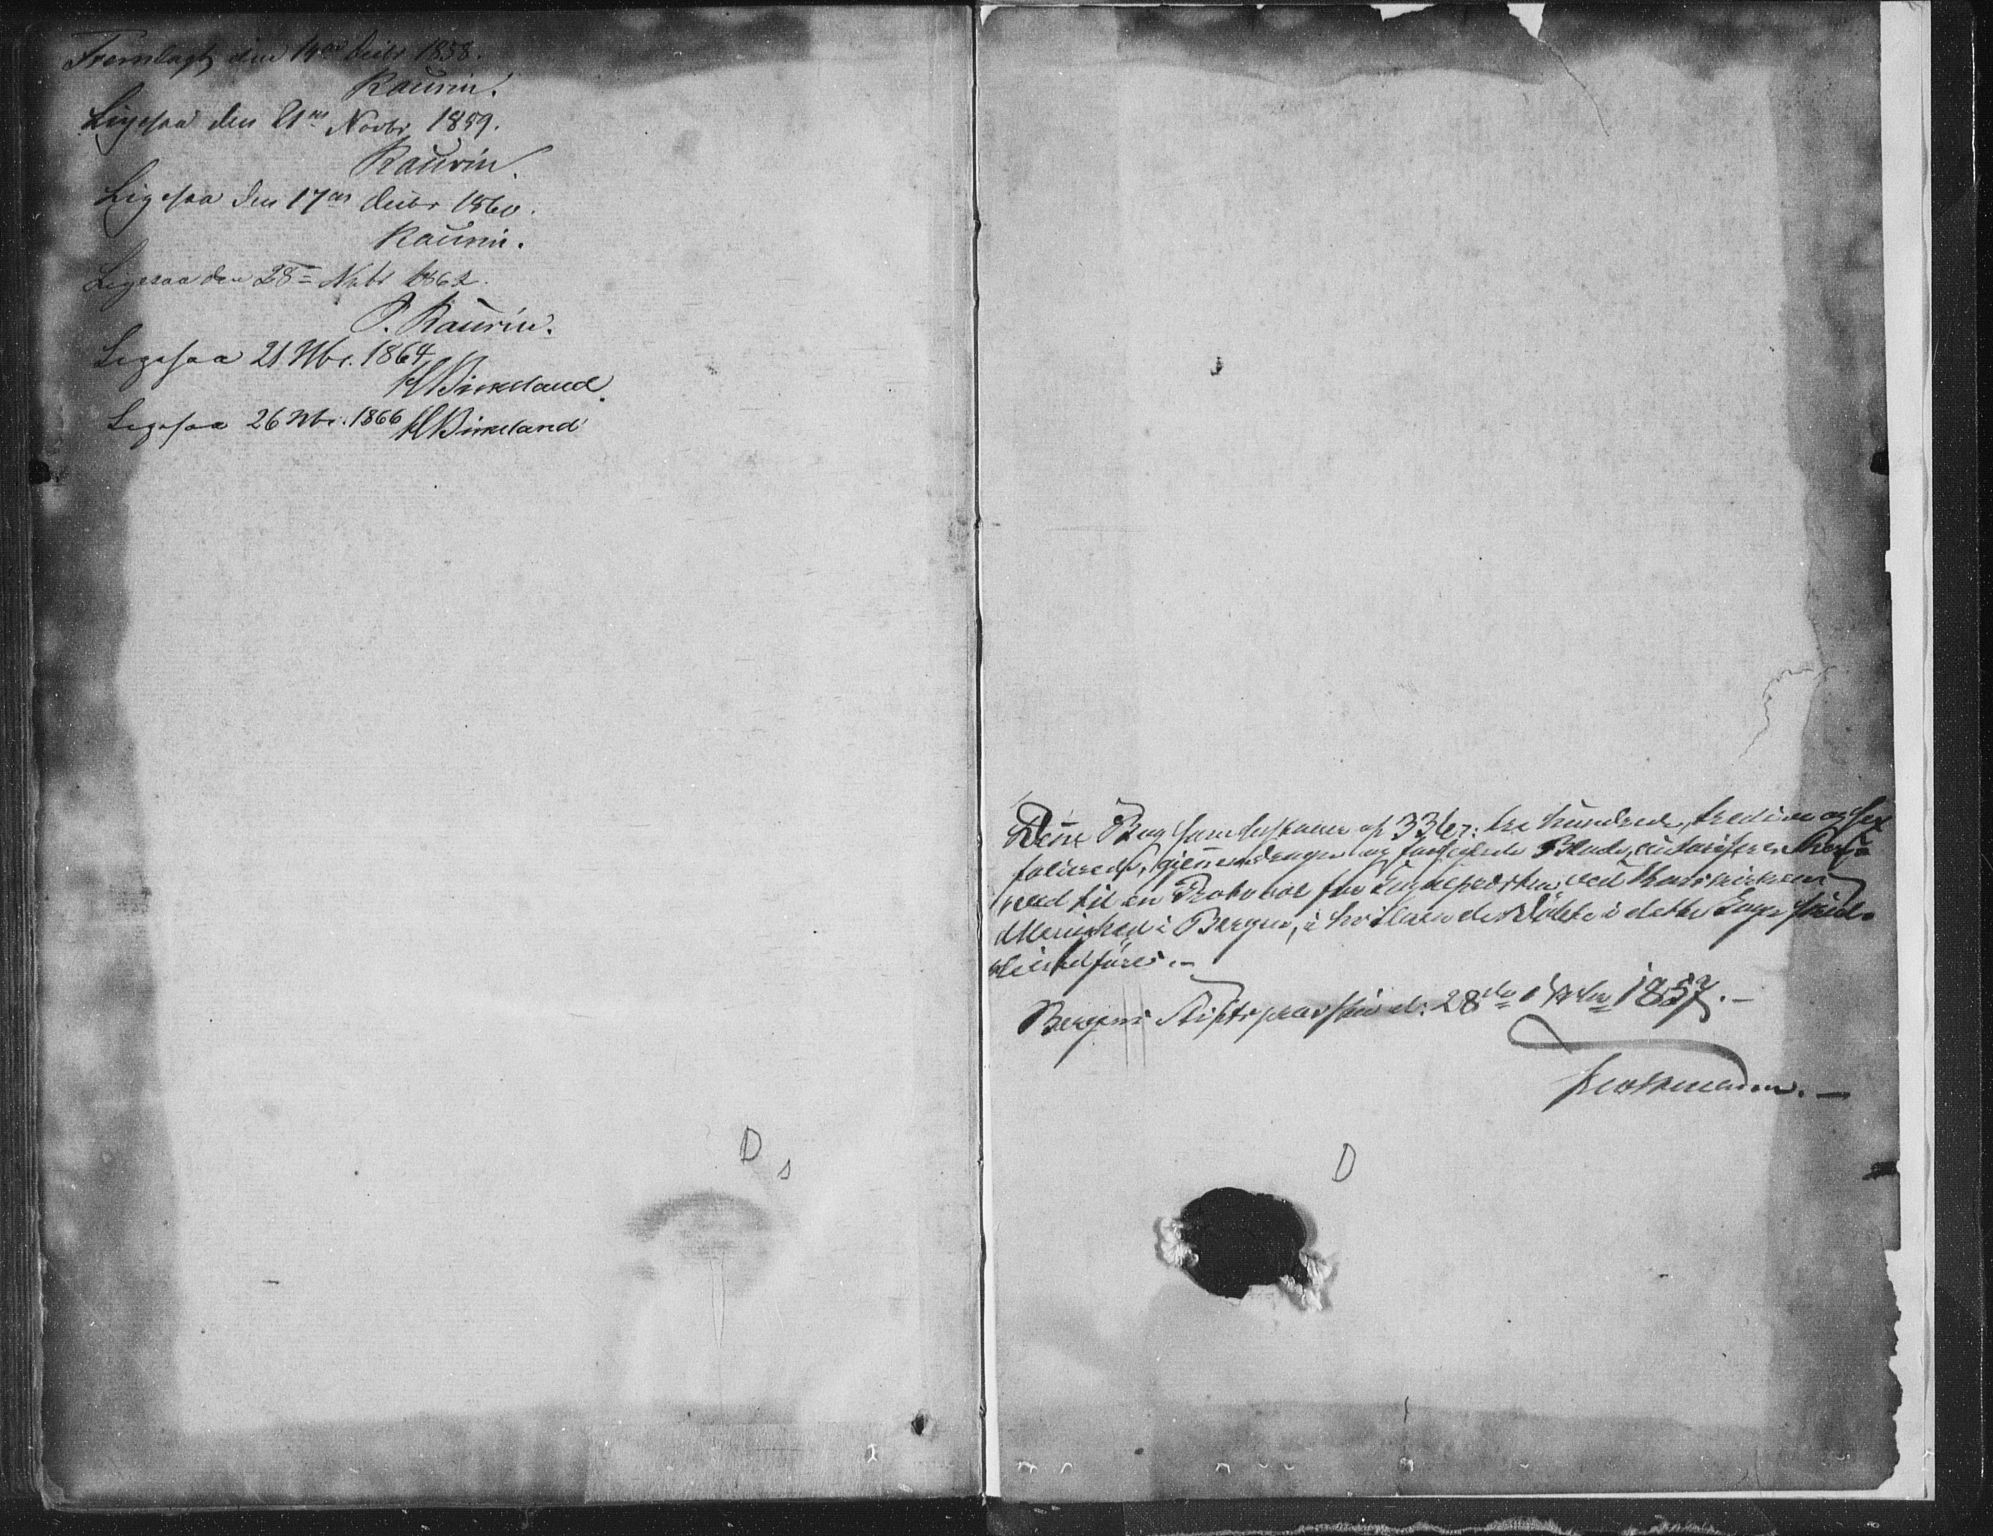 Fremlagt den 14de Decbr 1858.
Kaurin.
Ligesaa den 21de Novbr 1859.
Kaurin.
Ligesaa den 17de Decbr 1860.
Kaurin.
Ligesaa den 28= Nvbr 1862.
P. Kaurin.
Ligesaa 21 Nbr. 1864
HBirkeland.
Ligesaa 26 Nbr. 1866 HBirkeland
Denne Bog, bestaaende af 336, tre hundrede, tredive og sex
folierede, gjennemdragne og forseglede Blade, autoriseres her-
ved til en Protokol for Sognepræsten ved Korskirkens
Menighed i Bergen, i hvilken de Døbte i dette Sogn
indføres.-
Bergens Stiftsprovsti d: 28de 1857.-
D
s
D